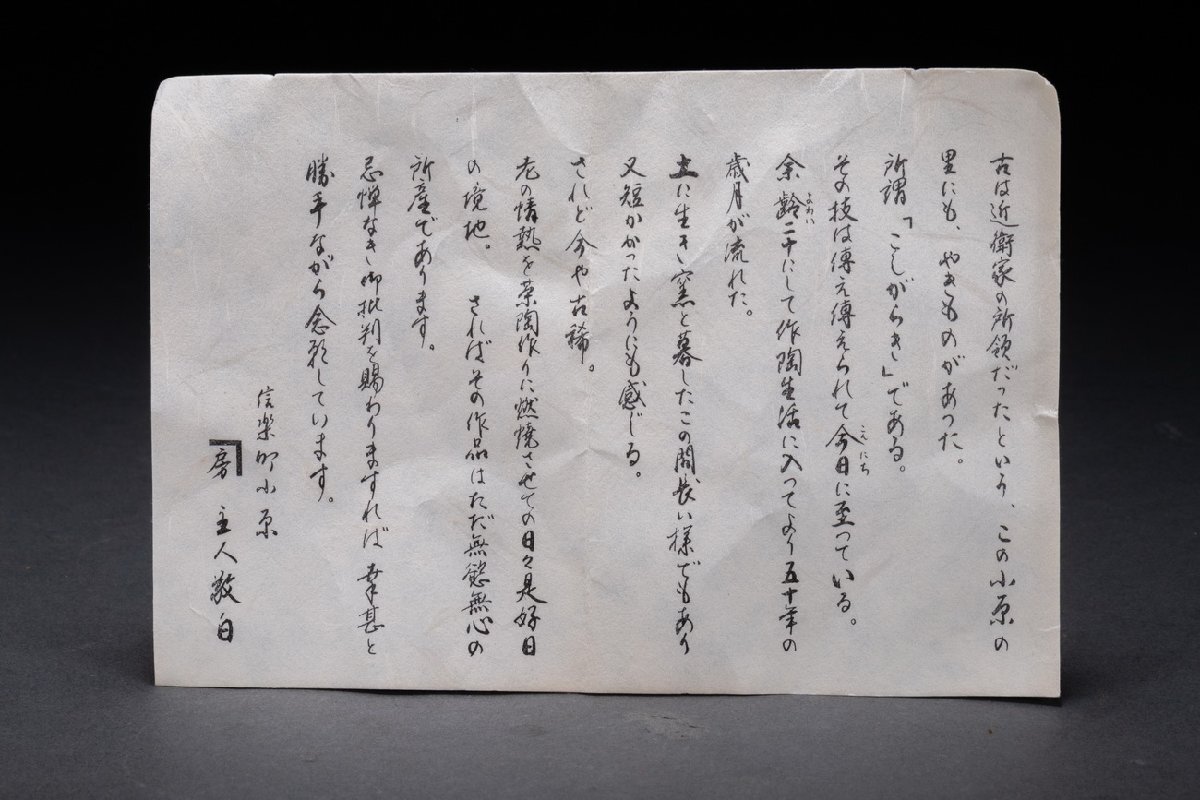 古は近衛家の所領だったという、この小原の
里にも、やきものがあった。
所謂「こしがらき」である。
その技は傳え傳えられて今日に至っている。
こんにち
余齢二十にして作陶生活に入ってより五十年の
よわい
歳月が流れた。
土に生き窯と暮したこの間長い様でもあり
又短かかったようにも感じる。
されど今や古稀。
老の情熱を茶陶作りに燃焼させての日々是好日
の境地。 さればその作品はただ無慾無心の
所産であります。
忌憚なき御批判を賜わりますれば幸甚と
勝手ながら念願しています。
信楽町小原
房 主人敬白